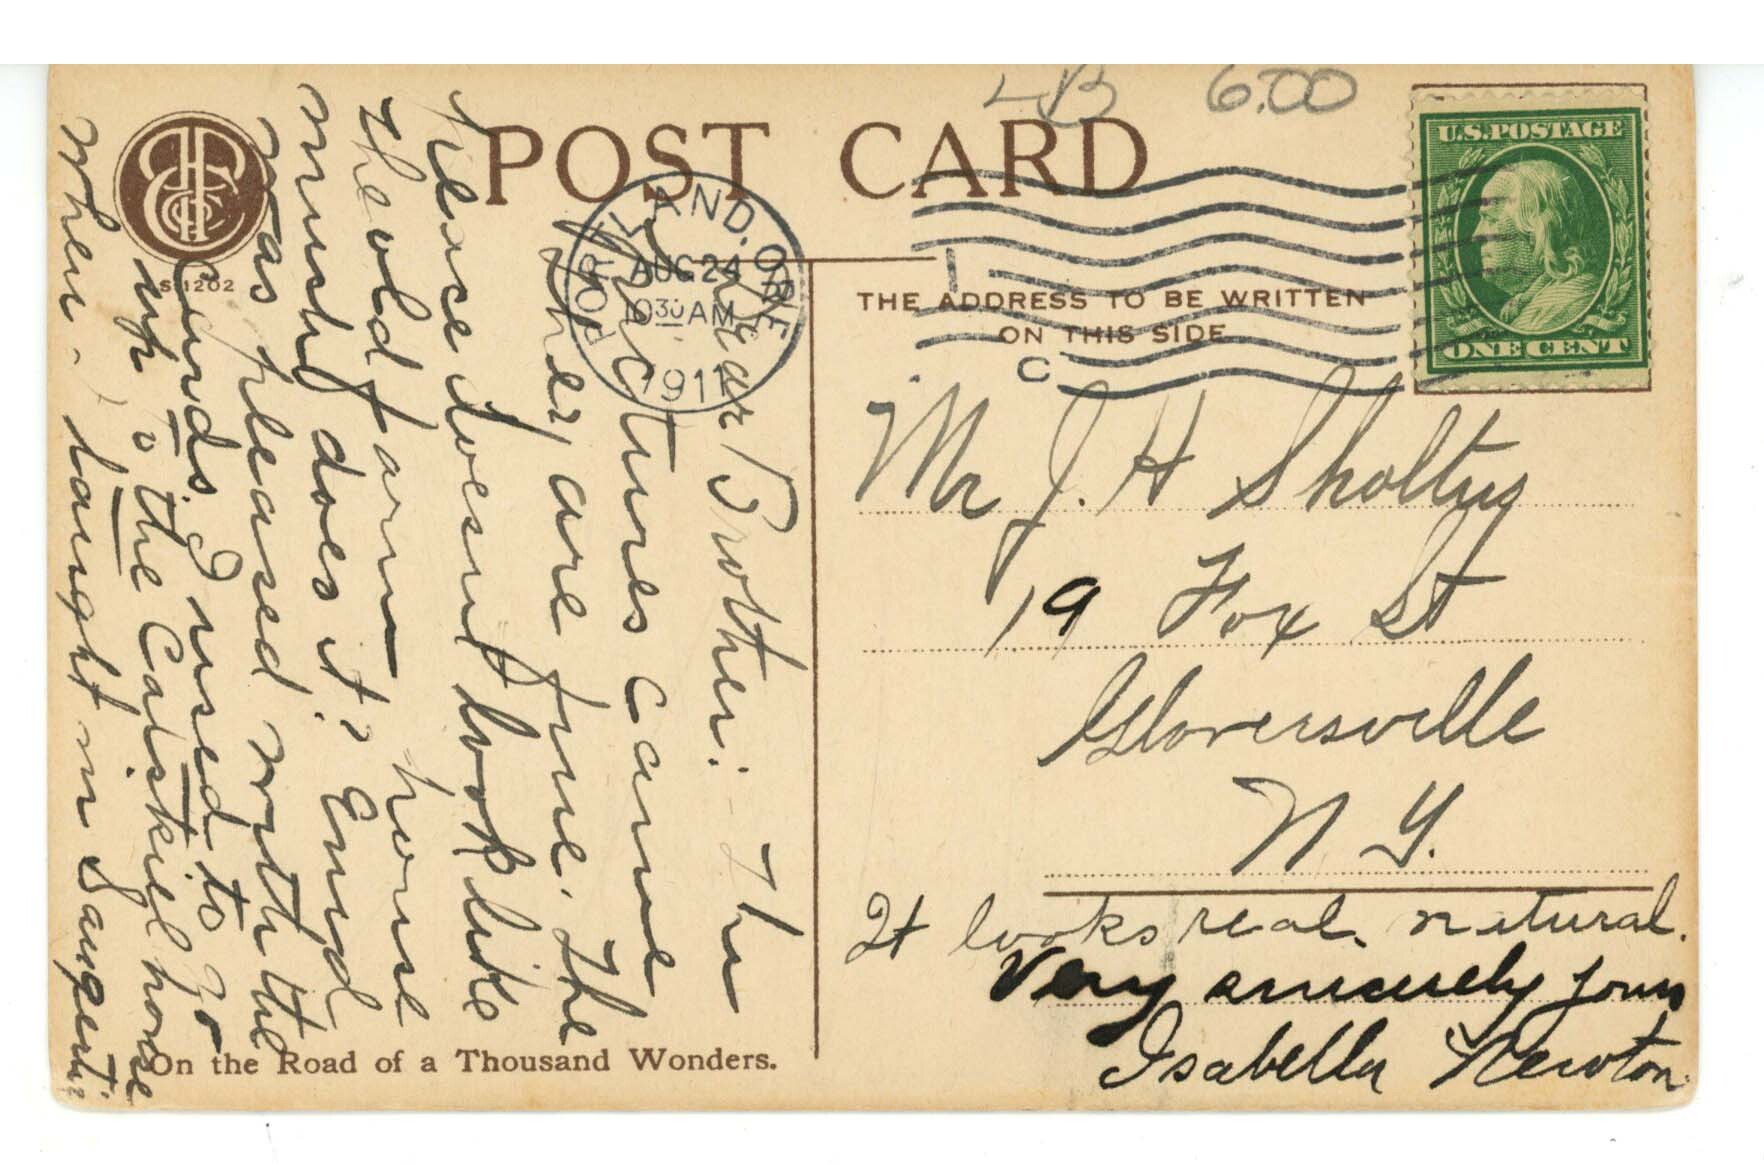 LB 6.00
POST CARD
U.S. POSTAGE
ONE CENT
PORTLAND, ORE.
AUG 24
10 30 AM
1911
C
THE ADDRESS TO BE WRITTEN
ON THIS SIDE
S-1202
Mr J. H Sholtus
19 Fox St
Gloversville
N Y.
Dear Brother:- The
Pictures came
They are fine. The
house doesnt look like
the old farm house
much does it? Enid
was pleased with the
cards. I used to go
up to the Catskill house
when I taught in Saugerties
It looks real natural.
Very sincerely yours
Isabella Newton
On the Road of a Thousand Wonders.